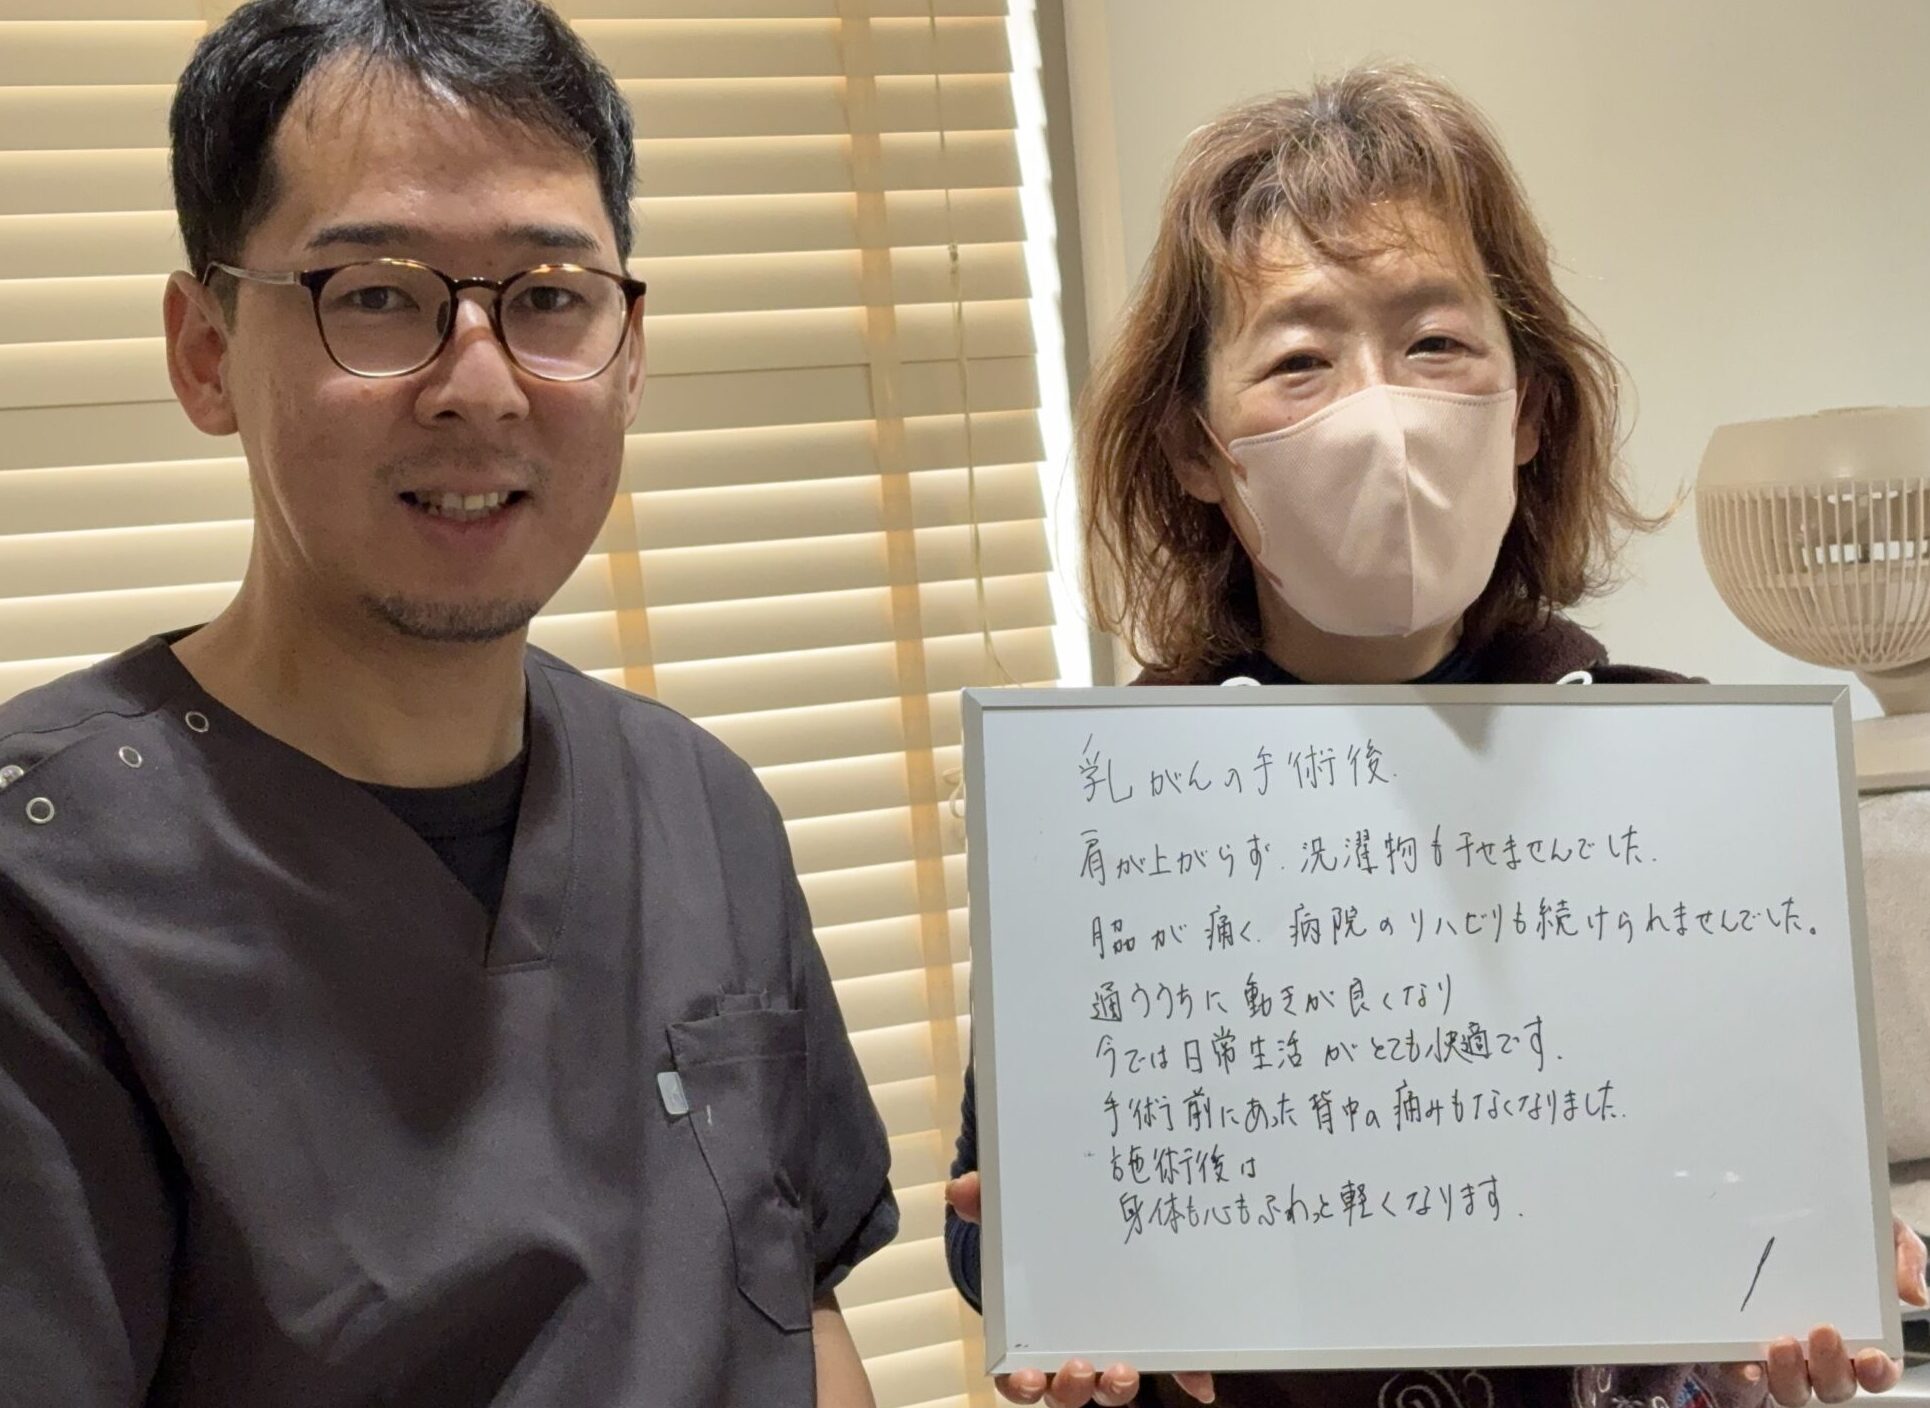 乳がんの手術後.
肩が上がらず.洗濯物も干せませんでした.
脇が痛く.病院のリハビリも続けられませんでした。
通ううちに動きが良くなり
今では日常生活がとても快適です.
手術前にあった背中の痛みもなくなりました.
施術後は
身体も心もふわっと軽くなります.